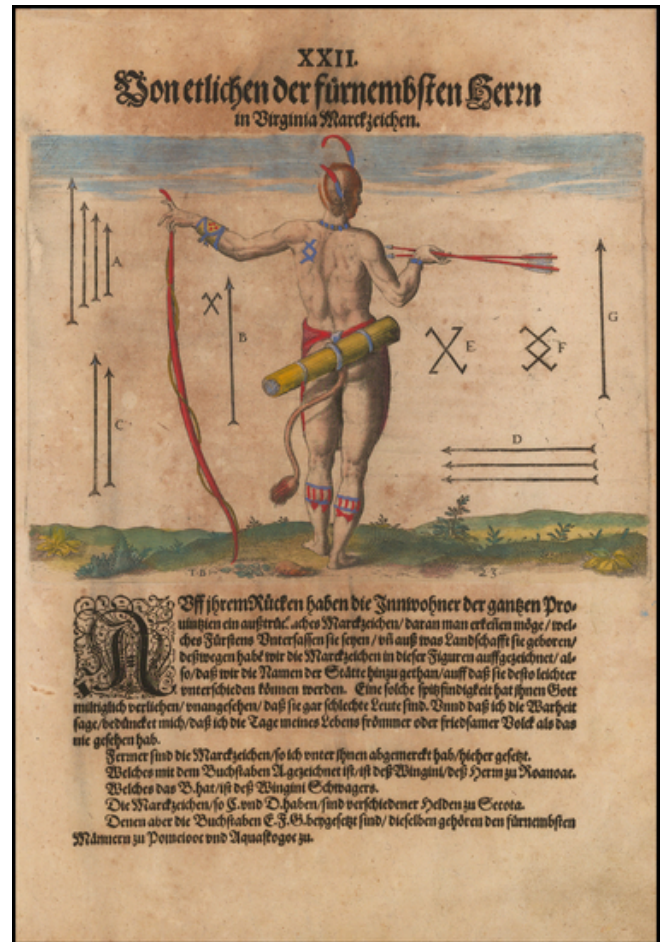 XXII.
Von etlichen der fürnembsten Herrn
in Virginia Marckzeichen.
A
B
C
E
F
G
D
T.B.
23.
Uff jhrem Rücken haben die Innwohner der gantzen Pro-
uintzien ein Marckzeichen/ daran man erkeñen möge/ wel-
ches Fürstens Vntersassen sie seyen/ vñ auß was Landschafft sie geboren/
deßwegen habẽ wir die Marckzeichen in dieser Figuren auffgezeichnet/ al-
so/ daß wir die Namen der Stätte hinzu gethan/ auff daß sie desto leichter
vnterschieden können werden. Eine solche spitzfindigkeit hat jhnen Gott
miltiglich verliehen/ vnangesehen/ daß sie gar schlechte Leute sind. Vnnd daß ich die Warheit
sage/ bedüncket mich/ daß ich die Tage meines Lebens frömmer oder friedsamer Volck als das
nie gesehen hab.
Ferrner sind die Marckzeichen/ so ich vnter jhnen abgemerckt hab/ hieher gesetzt.
Welches mit dem Buchstaben A. gezeichnet ist/ ist deß Wingini/ deß Herrn zu Roanoac.
Welches das B. hat/ ist deß Wingini Schwagers.
Die Marckzeichen/ so C. vnd D. haben/ sind verschiedener Helden zu Secota.
Denen aber die Buchstaben E. F. G. beygesetzt sind/ dieselben gehören den fürnembsten
Männern zu Pomeiooc vnd Aquaskogoc zu.